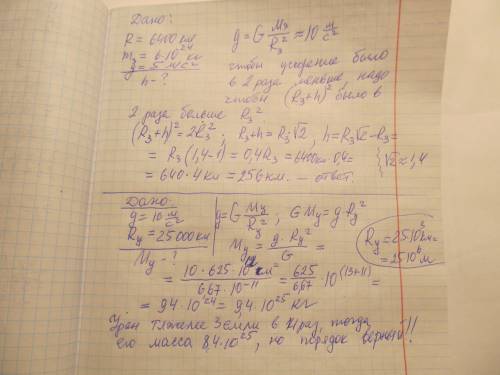 Дано:
R = 6400 км
m₃ = 6·10²⁴ кг
g = 5 м/с²
h - ?
g = G M₃/R₃² ≈ 10 м/с²
чтобы ускорение было
в 2 раза меньше, надо
чтобы (R₃+h)² было в
2 раза больше R₃².
(R₃+h)² = 2R₃²; R₃+h = R₃√2, h = R₃√2 - R₃ =
= R₃(1,4-1) = 0,4R₃ = 6400км·0,4 = {√2 ≈ 1,4
= 640·4км = 256км. — ответ.
Дано:
g = 10 м/с²
Rу = 25000 км
Mу - ?
g = G Mу/R₃²; GMу = g·Rу²
Mу = g·Rу²/G =
Rу = 25·10³км =
= 25·10⁶м
= 10·625·10¹² м²/6,67·10⁻¹¹ = 625/6,67·10⁽¹³⁺¹¹⁾ =
= 94·10²⁴ = 9,4·10²⁵ кг
Уран тяжелее Земли в 14 раз, тогда
его масса 8,4·10²⁵, но порядок верный!!